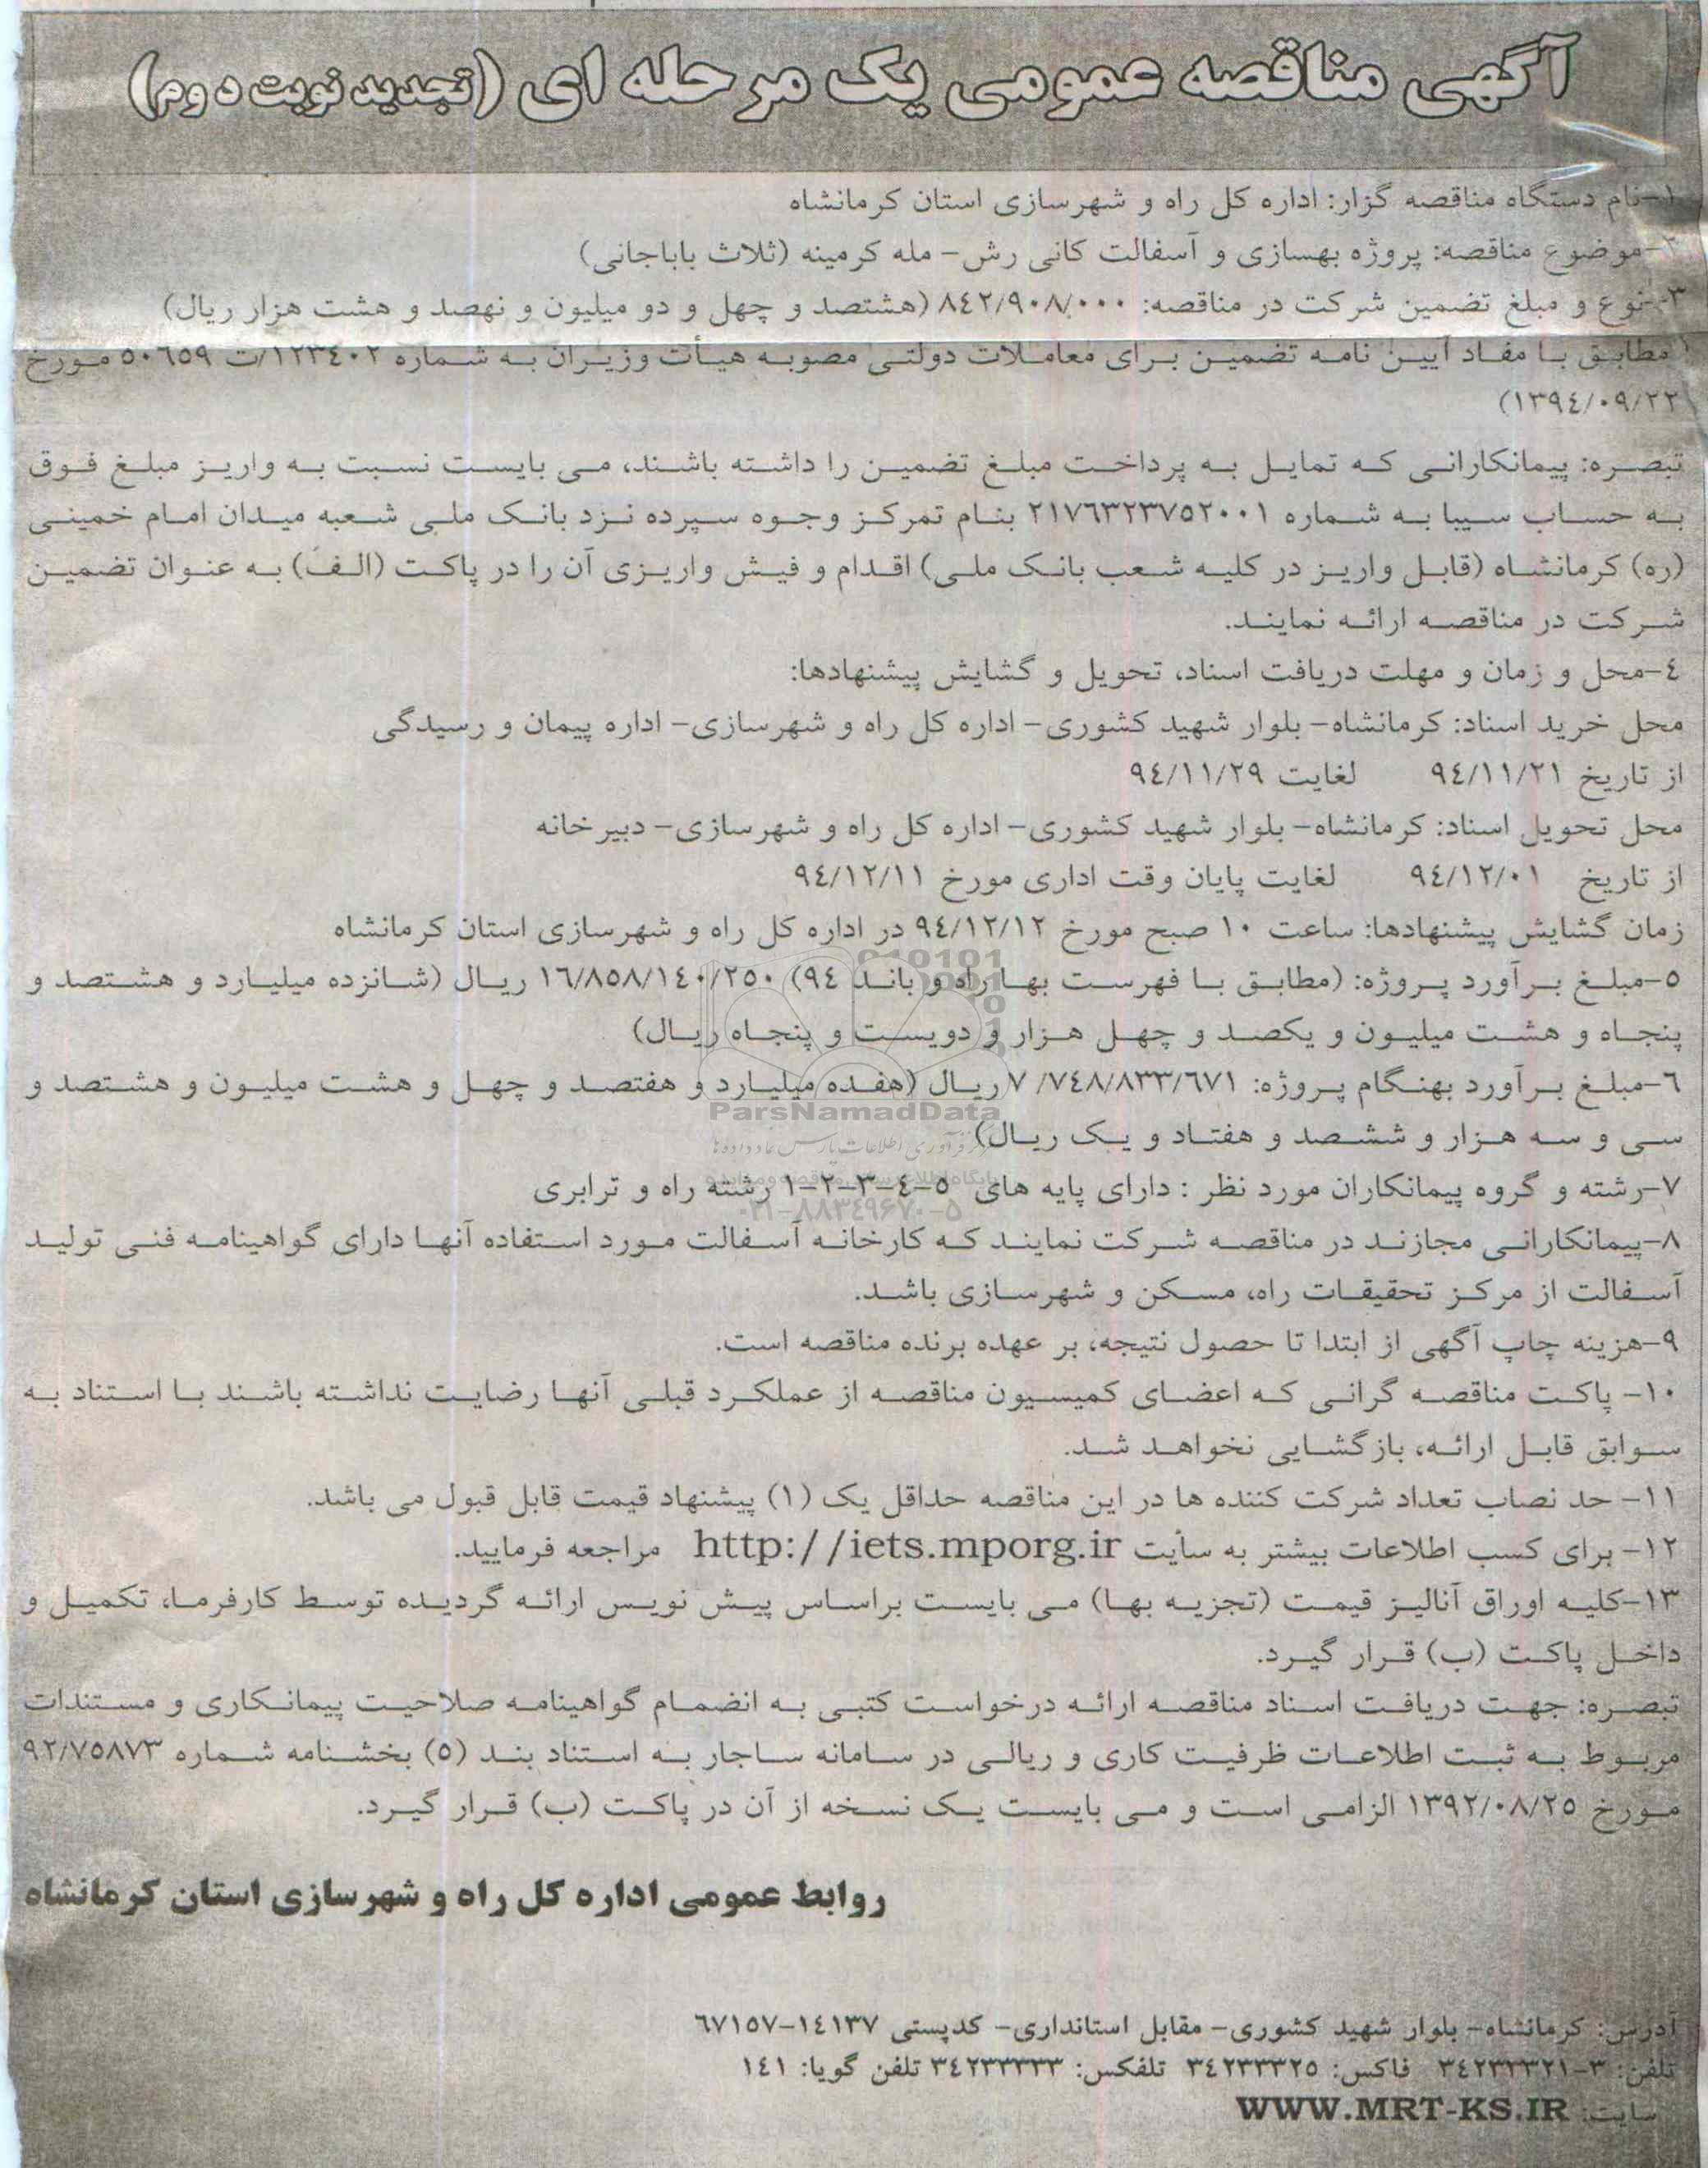 آگهی مناقصه عمومی یک مرحله ای (تجدید نوبت دوم)
۱-نام دستگاه مناقصه گزار: اداره کل راه و شهرسازی استان کرمانشاه
۲-موضوع مناقصه: پروژه بهسازی و آسفالت کانی رش- مله کرمینه (ثلاث باباجانی)
۳-نوع و مبلغ تضمین شرکت در مناقصه: ۸۴۲/۹۰۸/۰۰۰ (هشتصد و چهل و دو میلیون و نهصد و هشت هزار ریال)
(مطابق با مفاد آیین نامه تضمین برای معاملات دولتی مصوبه هیأت وزیران به شماره ۱۲۳۴۰۲/ت ۵۰۶۵۹ مورخ
۱۳۹۴/۰۹/۲۲)
تبصره: پیمانکارانی که تمایل به پرداخت مبلغ تضمین را داشته باشند، می بایست نسبت به واریز مبلغ فوق
به حساب سیبا به شماره ۲۱۷۶۳۲۳۷۵۲۰۰۱ بنام تمرکز وجوه سپرده نزد بانک ملی شعبه میدان امام خمینی
(ره) کرمانشاه (قابل واریز در کلیه شعب بانک ملی) اقدام و فیش واریزی آن را در پاکت (الف) به عنوان تضمین
شرکت در مناقصه ارائه نمایند.
۴-محل و زمان و مهلت دریافت اسناد، تحویل و گشایش پیشنهادها:
محل خرید اسناد: کرمانشاه- بلوار شهید کشوری- اداره کل راه و شهرسازی- اداره پیمان و رسیدگی
از تاریخ ۹۴/۱۱/۲۱ لغایت ۹۴/۱۱/۲۹
محل تحویل اسناد: کرمانشاه- بلوار شهید کشوری- اداره کل راه و شهرسازی- دبیرخانه
از تاریخ ۹۴/۱۲/۰۱ لغایت پایان وقت اداری مورخ ۹۴/۱۲/۱۱
زمان گشایش پیشنهادها: ساعت ۱۰ صبح مورخ ۹۴/۱۲/۱۲ در اداره کل راه و شهرسازی استان کرمانشاه
۵-مبلغ برآورد پروژه: (مطابق با فهرست بها راه و باند ۹۴) ۱۶/۸۵۸/۱۴۰/۲۵۰ ریال (شانزده میلیارد و هشتصد و
پنجاه و هشت میلیون و یکصد و چهل هزار و دویست و پنجاه ریال)
۶-مبلغ برآورد بهنگام پروژه: ۷/۷۴۸/۸۳۳/۶۷۱ ریال (هفده میلیارد و هفتصد و چهل و هشت میلیون و هشتصد و
سی و سه هزار و ششصد و هفتاد و یک ریال)
ParsNamadData
۷-رشته و گروه پیمانکاران مورد نظر : دارای پایه های ۵-۴-۳-۲-۱ رشته راه و ترابری
۰۲۱-۸۸۳۴۹۶۷۰-۵
۸-پیمانکارانی مجازند در مناقصه شرکت نمایند که کارخانه آسفالت مورد استفاده آنها دارای گواهینامه فنی تولید
آسفالت از مرکز تحقیقات راه، مسکن و شهرسازی باشد.
۹-هزینه چاپ آگهی از ابتدا تا حصول نتیجه، بر عهده برنده مناقصه است.
۱۰- پاکت مناقصه گرانی که اعضای کمیسیون مناقصه از عملکرد قبلی آنها رضایت نداشته باشند با استناد به
سوابق قابل ارائه، بازگشایی نخواهد شد.
۱۱- حد نصاب تعداد شرکت کننده ها در این مناقصه حداقل یک (۱) پیشنهاد قیمت قابل قبول می باشد.
۱۲- برای کسب اطلاعات بیشتر به سایت http://iets.mporg.ir مراجعه فرمایید.
۱۳-کلیه اوراق آنالیز قیمت (تجزیه بها) می بایست براساس پیش نویس ارائه گردیده توسط کارفرما، تکمیل و
داخل پاکت (ب) قرار گیرد.
تبصره: جهت دریافت اسناد مناقصه ارائه درخواست کتبی به انضمام گواهینامه صلاحیت پیمانکاری و مستندات
مربوط به ثبت اطلاعات ظرفیت کاری و ریالی در سامانه ساجار به استناد بند (۵) بخشنامه شماره ۹۲/۷۵۸۷۳
مورخ ۱۳۹۲/۰۸/۲۵ الزامی است و می بایست یک نسخه از آن در پاکت (ب) قرار گیرد.
روابط عمومی اداره کل راه و شهرسازی استان کرمانشاه
آدرس: کرمانشاه- بلوار شهید کشوری- مقابل استانداری- کدپستی ۱۴۱۳۷-۶۷۱۵۷
تلفن: ۳-۳۴۲۳۳۳۲۱ فاکس: ۳۴۲۳۳۳۲۵ تلفکس: ۳۴۲۳۳۳۳۳ تلفن گویا: ۱۴۱
سایت: WWW.MRT-KS.IR